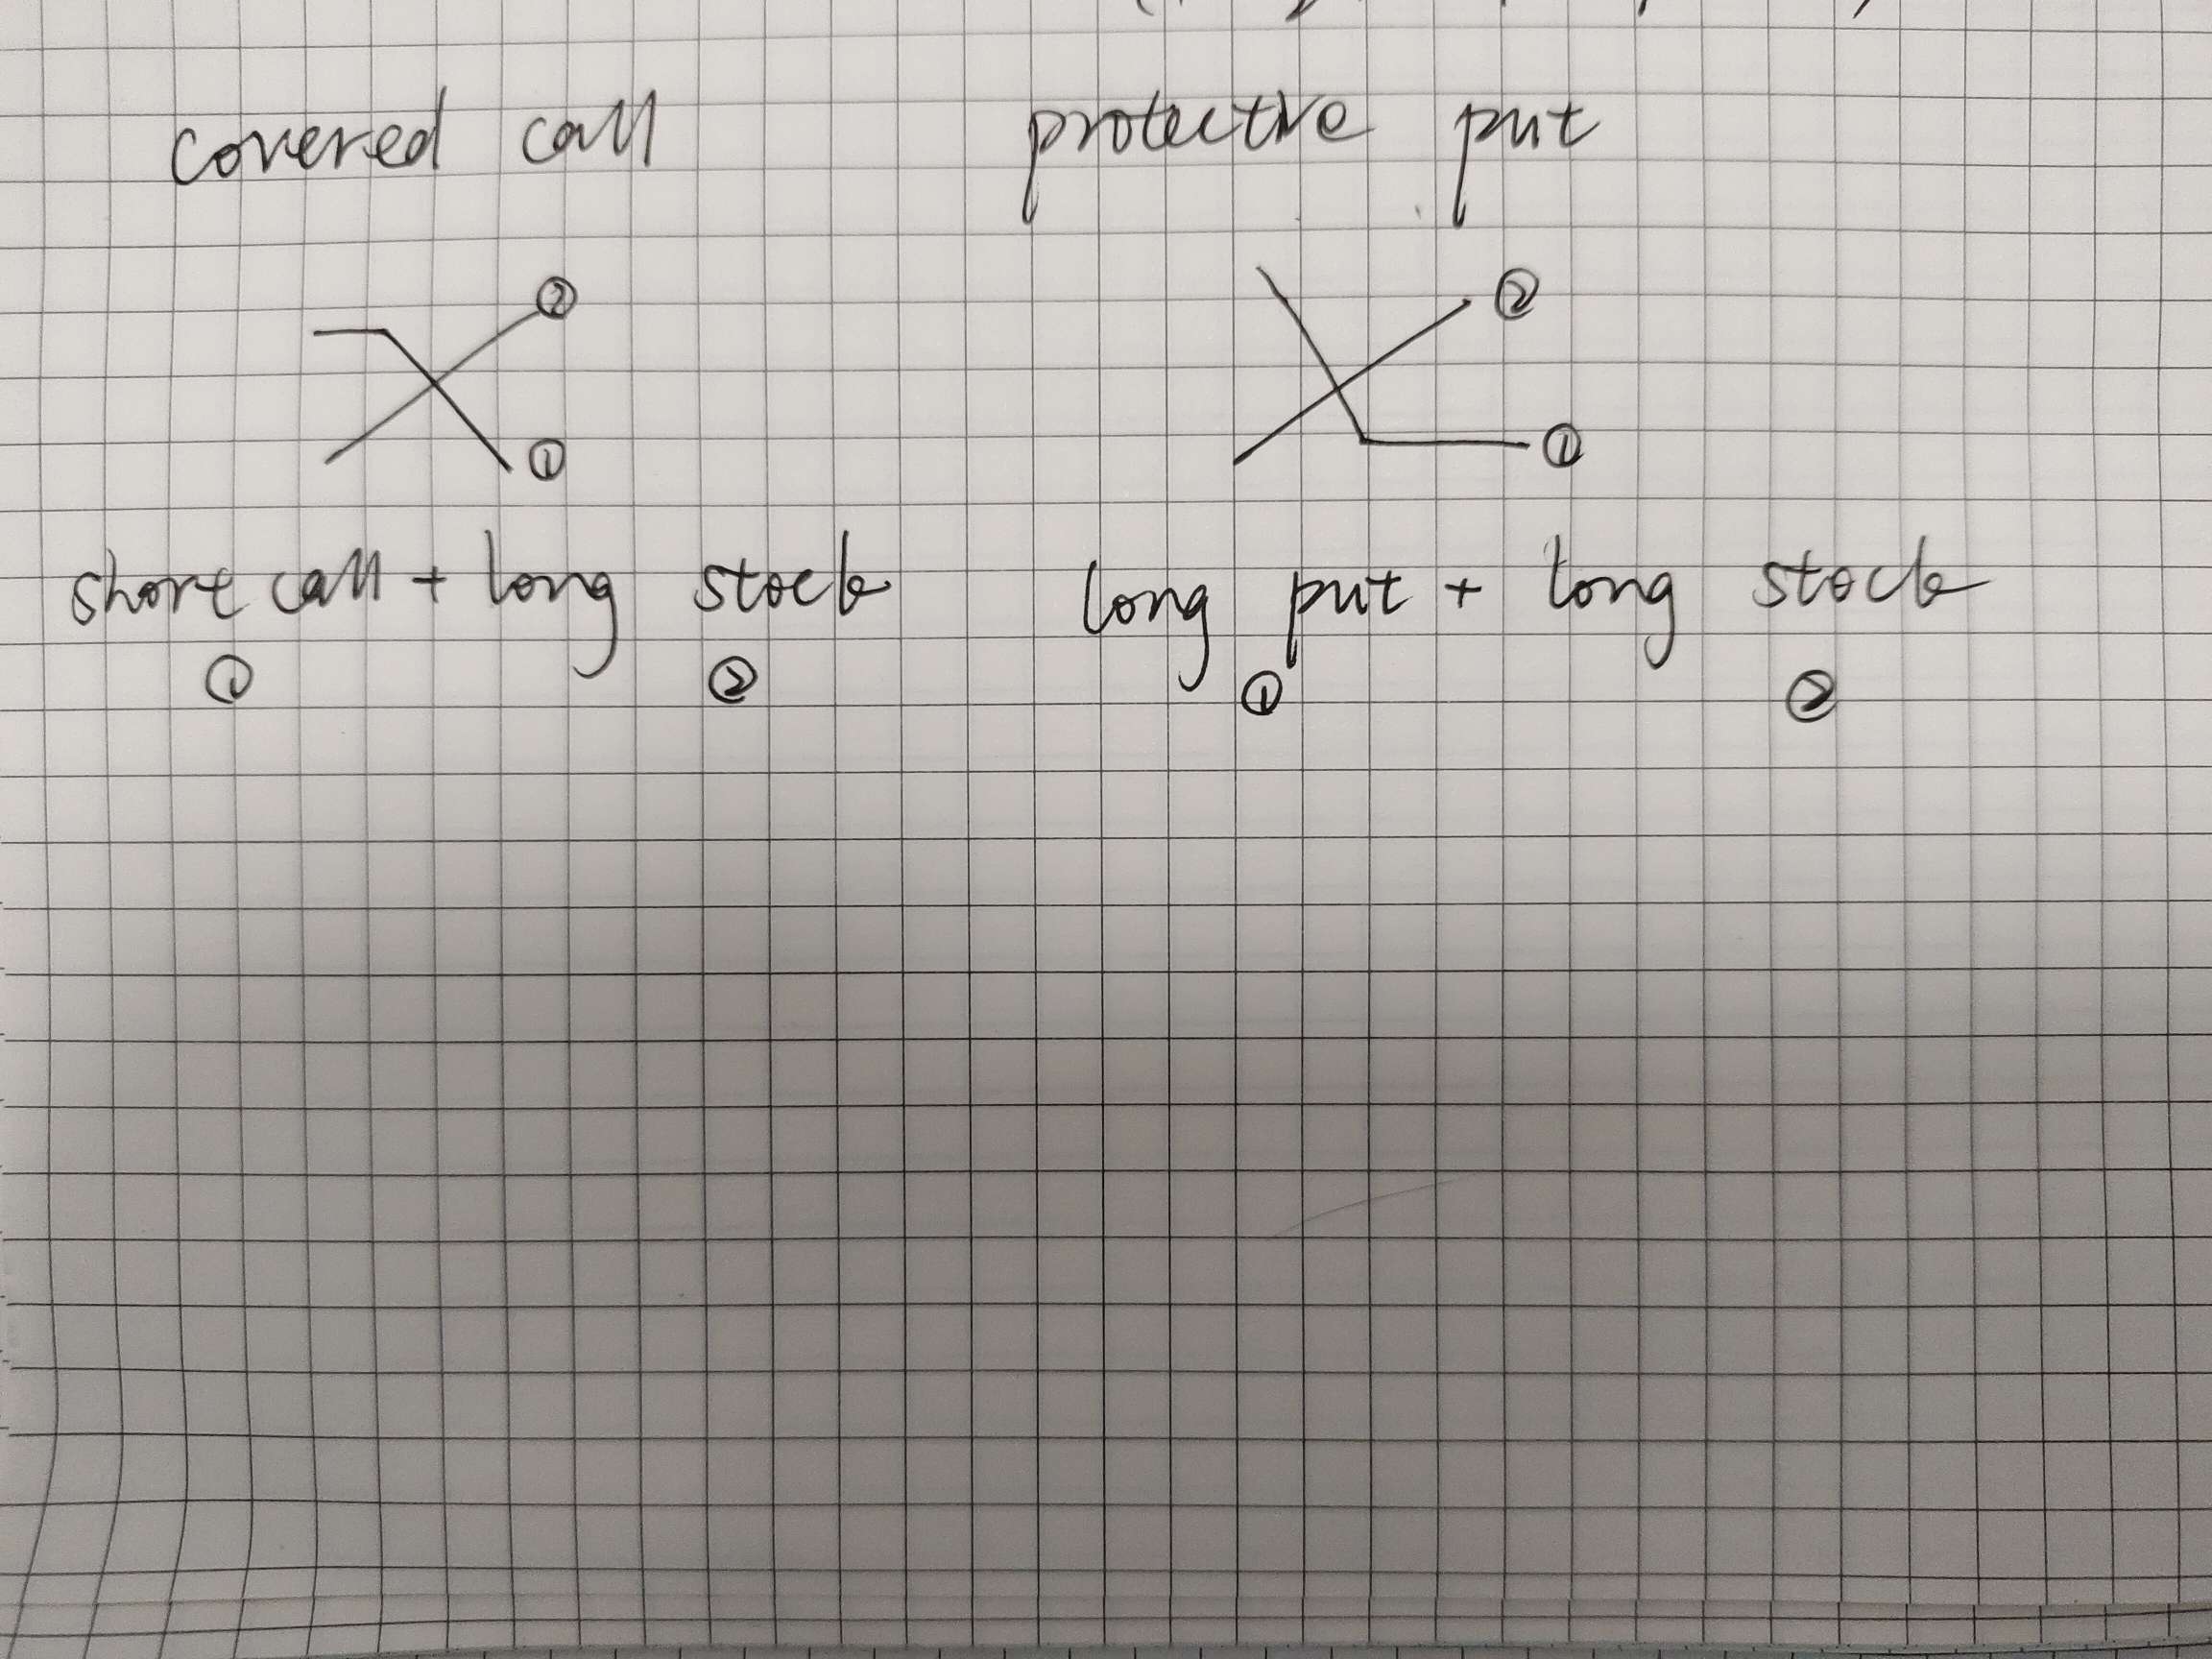 covered call
protective put
②
②
①
①
short call + long stock
① ②
long put + long stock
① ②